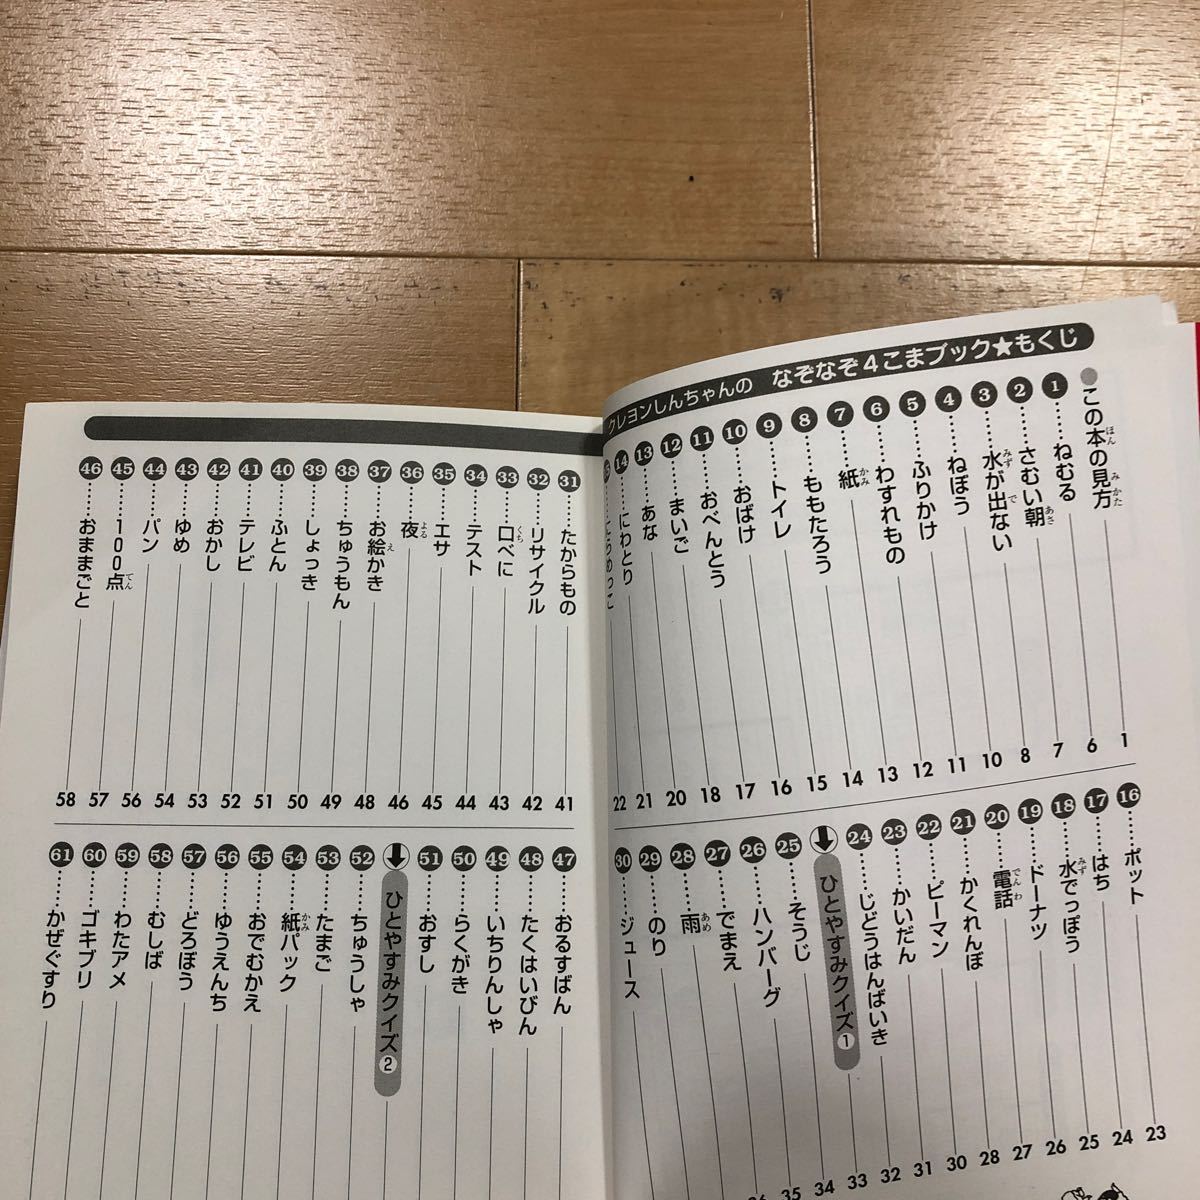 クレヨンしんちゃんの なぞなぞ4こまブック★もくじ
●この本の見方 1
1……ねむる 6
2……さむい朝 7
3……水が出ない 8
4……ねぼう 10
5……ふりかけ 11
6……わすれもの 12
7……紙 13
8……ももたろう 14
9……トイレ 15
10……おばけ 16
11……おべんとう 17
12……まいご 18
13……あな 20
14……にわとり 21
22
16……ポット 23
17……はち 24
18……水でっぽう 25
19……ドーナツ 26
20……電話 27
21……かくれんぼ 28
22……ピーマン 30
23……かいだん 31
24……じどうはんばいき 32
ひとやすみクイズ① 33
25……そうじ 34
26……ハンバーグ 35
27……でまえ
28……雨
29……のり
30……ジュース
31……たからもの 41
32……リサイクル 42
33……口べに 43
34……テスト 44
35……エサ 45
36……夜 46
37……お絵かき 48
38……ちゅうもん 49
39……しょっき 50
40……ふとん 51
41……テレビ 52
42……おかし 53
43……ゆめ 54
44……パン 56
45……100点 57
46……おままごと 58
47……おるすばん
48……たくはいびん
49……いちりんしゃ
50……らくがき
51……おすし
ひとやすみクイズ②
52……ちゅうしゃ
53……たまご
54……紙パック
55……おでむかえ
56……ゆうえんち
57……どろぼう
58……むしば
59……わたアメ
60……ゴキブリ
61……かぜぐすり